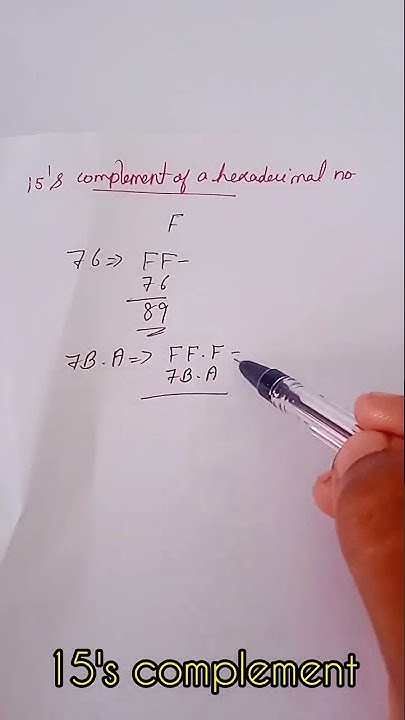 15's complement of a hexadecimal no
F
76 => FF-
76
89
7B.A => FF.F-
7B.A
15's complement